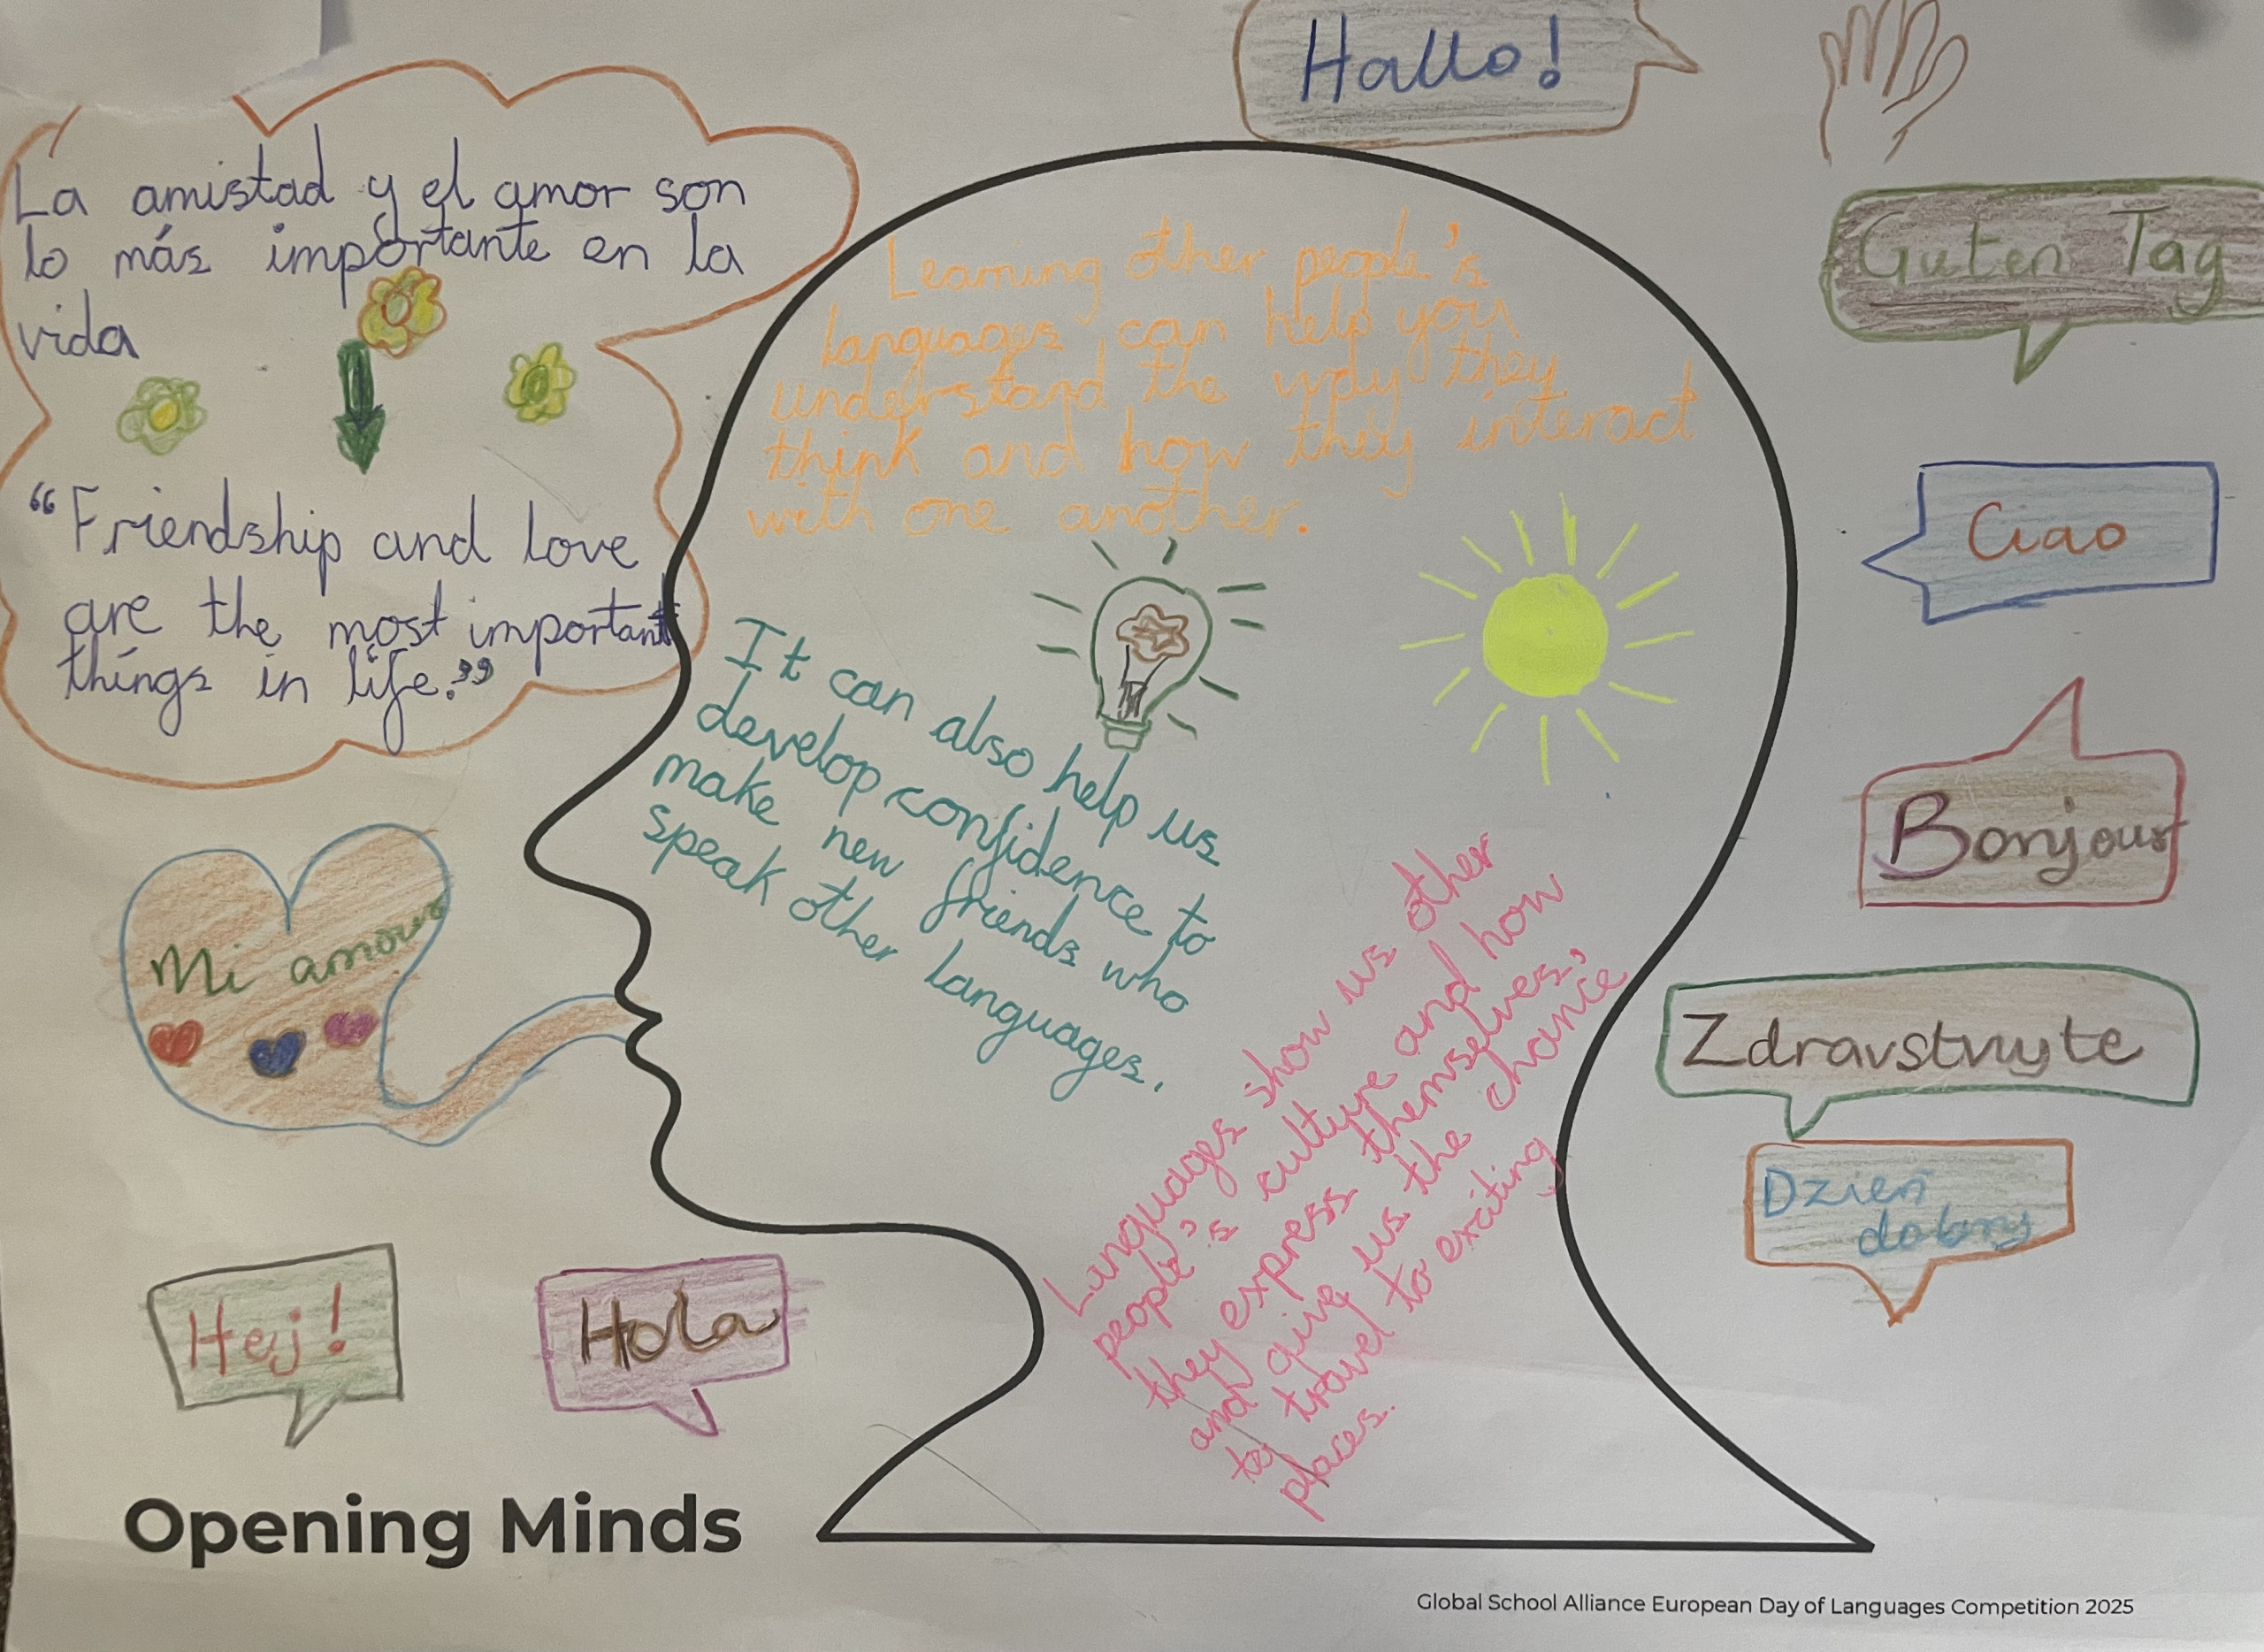 Hallo!
La amistad y el amor son
lo más importante en la
vida
“Friendship and love
are the most important
things in life.”
Learning other people's
languages can help you
understand the way they
think and how they interact
with one another.
It can also help us
develop confidence to
make new friends who
speak other languages.
Languages show us other
people's culture and how
they express themselves,
and give us the chance
to travel to exciting
places.
Mi amour
Guten Tag
Ciao
Bonjour
Zdravstvuyte
Dzień
dobry
Hej!
Hola
Opening Minds
Global School Alliance European Day of Languages Competition 2025